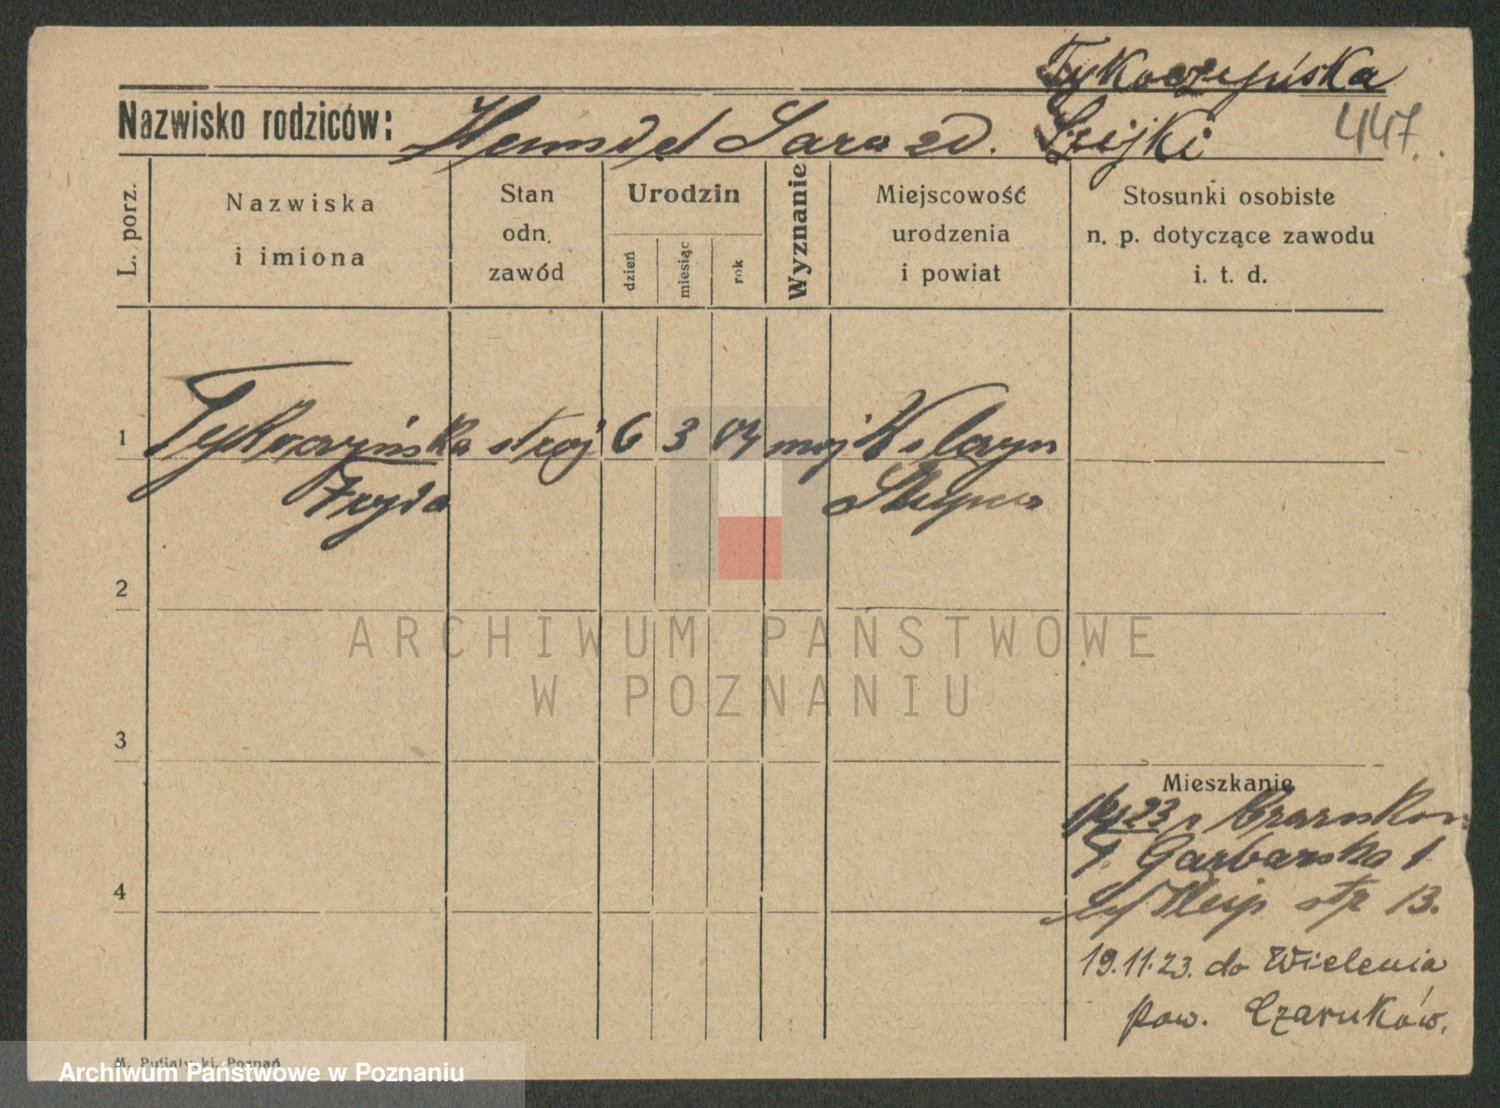 Tykoczyńska
Nazwisko rodziców: Sara zd. Szijki 447.
L. porz.
Nazwiska i imiona
Stan odn. zawód
Urodzin
dzień miesiąc rok
Wyznanie
Miejscowość urodzenia i powiat
Stosunki osobiste n. p. dotyczące zawodu i. t. d.
1 Tykoczyńska 6 3 04 moj
Fryda Słupca
2
3
4
Mieszkanie
23 z Czarnkow
Garbarska 1
str 13.
19.11.23. do Wielenia
pow. Czarnków.
M. Putiatycki, Poznań
ARCHIWUM PAŃSTWOWE
W POZNANIU
Archiwum Państwowe w Poznaniu